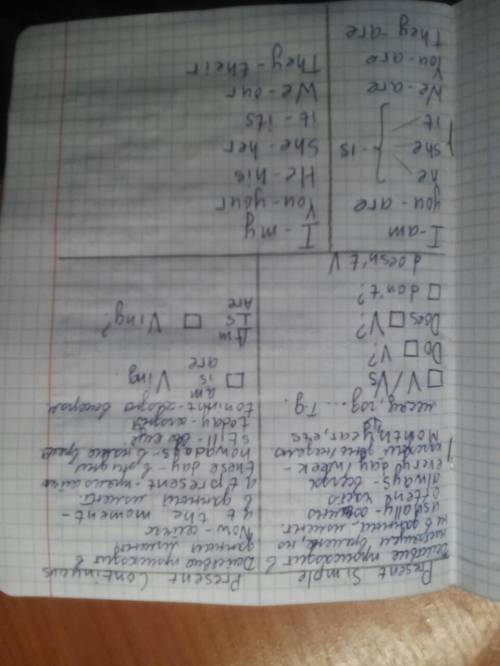 Present Simple
Действие происходит в
настоящем времени, но
не в данный момент
usually - обычно
often часто
always - всегда
every day / week -
каждый день / неделю
Month, year, etc
месяц, год ... т.д.
□ V/Vs
Do □ V?
Does □ V?
□ don't?
doesn't V
Present Continyous
Действие происходит в
данный момент
Now - сейчас
at the moment -
в данный момент
at present -
these day - в эти дни
nowadays - в наше время
still - еще
today - сегодня
tonight - вечером
□ am is are Ving.
Am Is Are □ Ving?
I - am
you - are
he
she - is
it
We - are
You - are
They - are
I - my
You - your
He - his
She - her
it - its
We - our
They - their